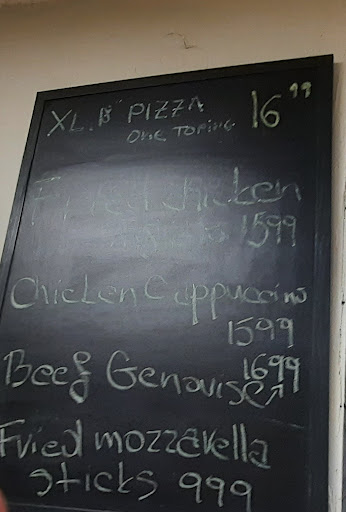 XL. 18" PIZZA 16"
ONE TOPING
Fried chicken
1599
Chicken Cappuccino
1599
Beef Genovise 1699
Fried mozzarella
sticks 999